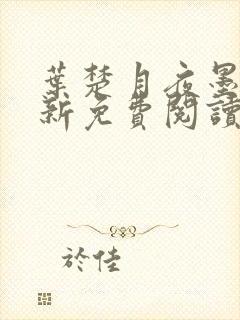 葉楚月夜墨
新免費閱讀
於佳